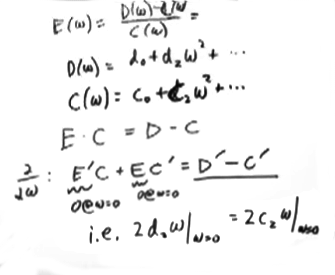 E(ω) = D(ω) - C(ω) / C(ω) =
D(ω) = d₀ + d₂ω² + ...
C(ω) = c₀ + c₂ω² + ...
E · C = D - C
∂/∂ω : E'C + EC' = D' - C'
0@ω=0 0@ω=0
i.e. 2d₂ω|ω=0 = 2c₂ω|ω=0